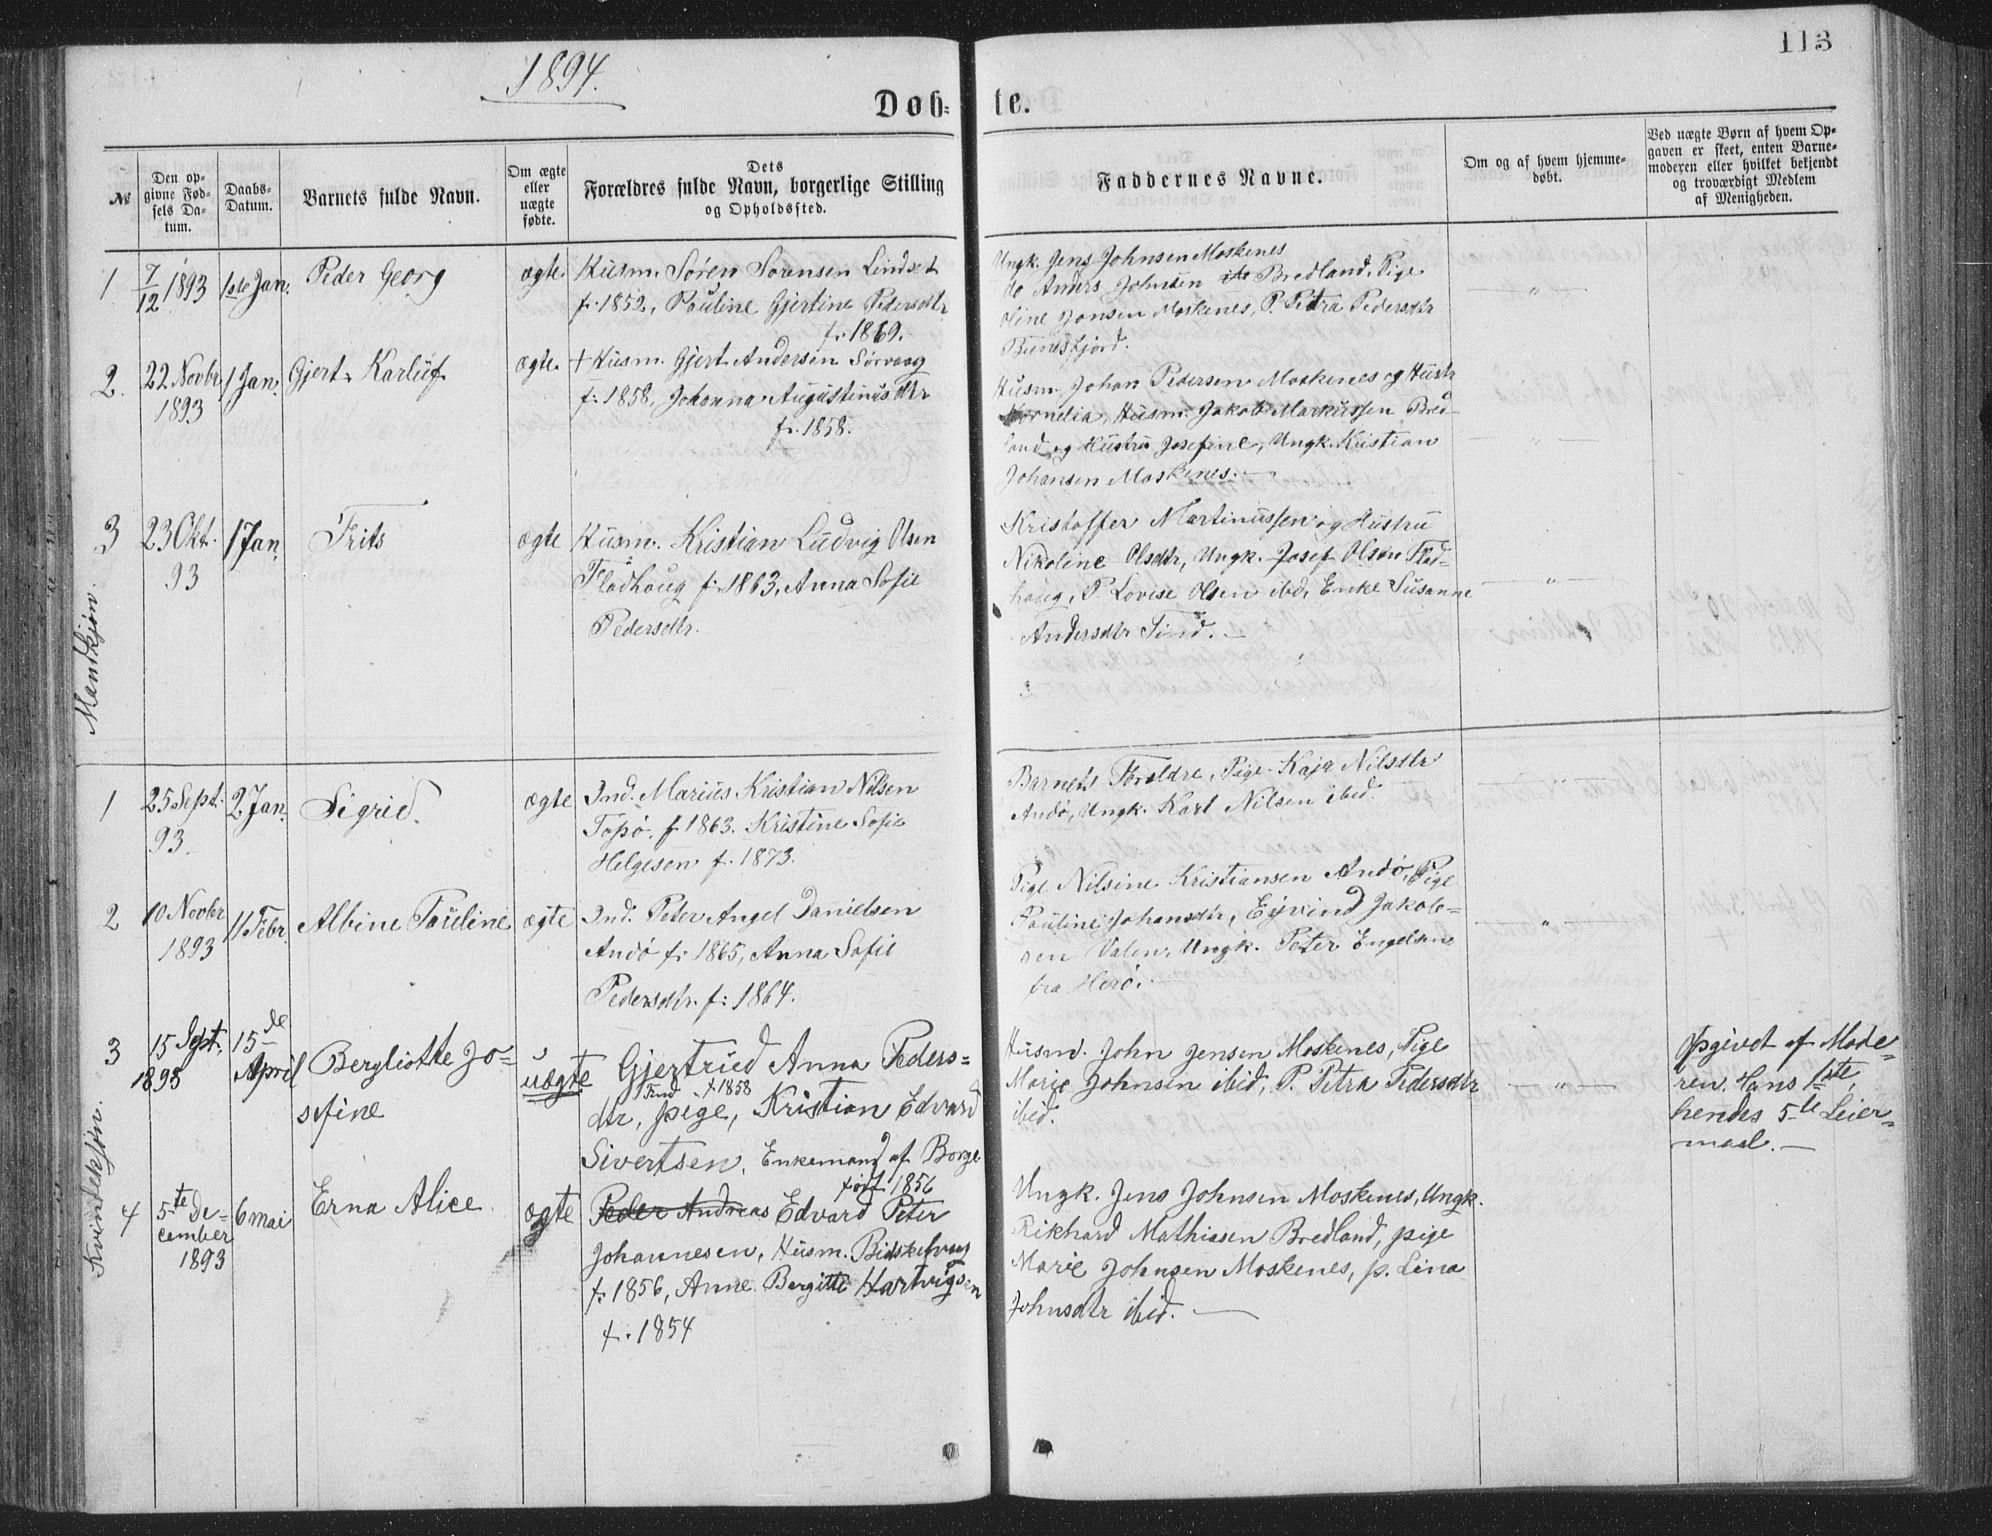 1894.
113
Døb-
te.
№
Den op-
givne Fød-
sels Da-
tum.
Daabs-
Datum.
Barnets fulde Navn.
Om ægte
eller
uægte
fødte.
Dets
Forældres fulde Navn, borgerlige Stilling
og Opholdssted.
Faddernes Navne.
Om og af hvem hjemme-
døbt.
Ved uægte Børn af hvem Op-
gaven er skeet, enten Barne-
moderen eller hvilket bekjendt
og troværdigt Medlem
af Menigheden.
Mandkjøn.
1
7/12 1893
1ste Jan.
Peder Georg
ægte.
Husm. Søren Sørensen Lindset
f. 1852, Pauline Gjertine Pedersdtr
f. 1869.
Ungk. Jens Johnsen Moskenes
do Anders Johnsen Bredland, Pige
Oline Jonsen Moskenes, P. Petra Pedersdtr
Bunesfjord.
— " —
2.
22 Novbr
1893
1 Jan.
Gjert Karluf
ægte.
+ Husm. Gjert Andersen Sørvaag
f. 1858, Johanna Augustinusdtr
f. 1858.
Husm. Johan Pedersen Moskenes og Hustr
Kornelia, Husm. Jakob Markussen Bred-
land og Hustru Josefine, Ungk. Kristian
Johansen Moskenes. —
— " —
3
23 Okt.
93
1 Jan.
Frits
ægte
Husm. Kristian Ludvig Olsen
Fladhaug f. 1863, Anna Sofie
Pedersdtr.
Kristoffer Martinussen og Hustru
Nikoline Olsdtr, Ungk. Josef Olsen Flad-
haug, P. Lovise Olsen ibid, Enke Susanne
Andersdtr Tind. —
— " —
Kvindekjøn.
1
25 Sept.
93
2 Jan.
Sigrid.
ægte
Ind. Marius Kristian Nilsen
Topø. f. 1863. Kristine Sofie
Helgesen f. 1873.
Barnets Forældre, Pige Kaja Nilsdtr
Andø, Ungk. Karl Nilsen ibid.
— " —
2
10 Novbr
1893
11 Febr.
Albine Pauline
ægte
Ind. Peter Angel Danielsen
Andø f. 1865, Anna Sofie
Pedersdtr. f. 1864.
Pige Nilsine Kristiansen Andø, Pige
Pauline Johansdtr, Eyvind Jakob-
sen Valen, Ungk. Peter Engelsen
fra Herø. —
— " —
3
15 Sept.
1893
15de
April
Bergliotte Jo-
sefine
uægte
Gjertrud Anna Peders-
Tind f. 1858
dtr, pige, Kristian Edvard
Sivertsen, Enkemand af Borge
født 1856
Husm. John Jensen Moskenes, Pige
Marie Johnsen ibid, P. Petra Pedersdtr
ibid.
— " —
Opgivet af Mode-
ren. Hans 1ste,
hendes 5te Leier-
maal. —
4
5te De-
cember
1893
6 mai
Erna Alice
ægte
Peder Andreas Edvard Peter
Johannesen, Husm.
f. 1856, Anne Bergitte Hartvigsen
f. 1854
Ungk. Jens Johnsen Moskenes, Ungk.
Rikhard Mathiasen Bredland, pige
Marie Johnsen Moskenes, p. Lina
Johnsdtr ibid. —